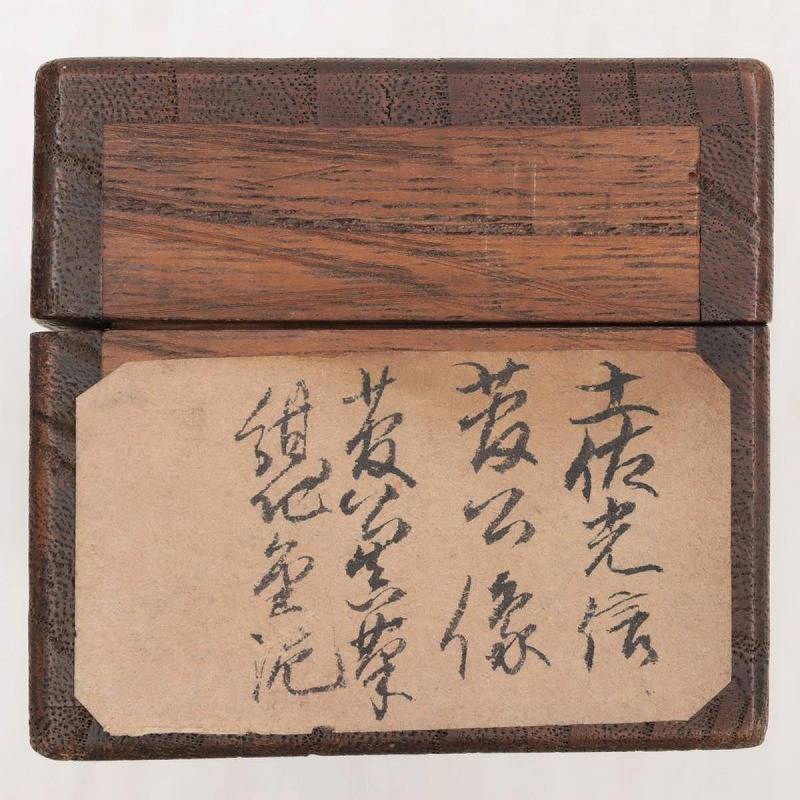 土佐光信
菅公像
菅公真筆
紺地金泥